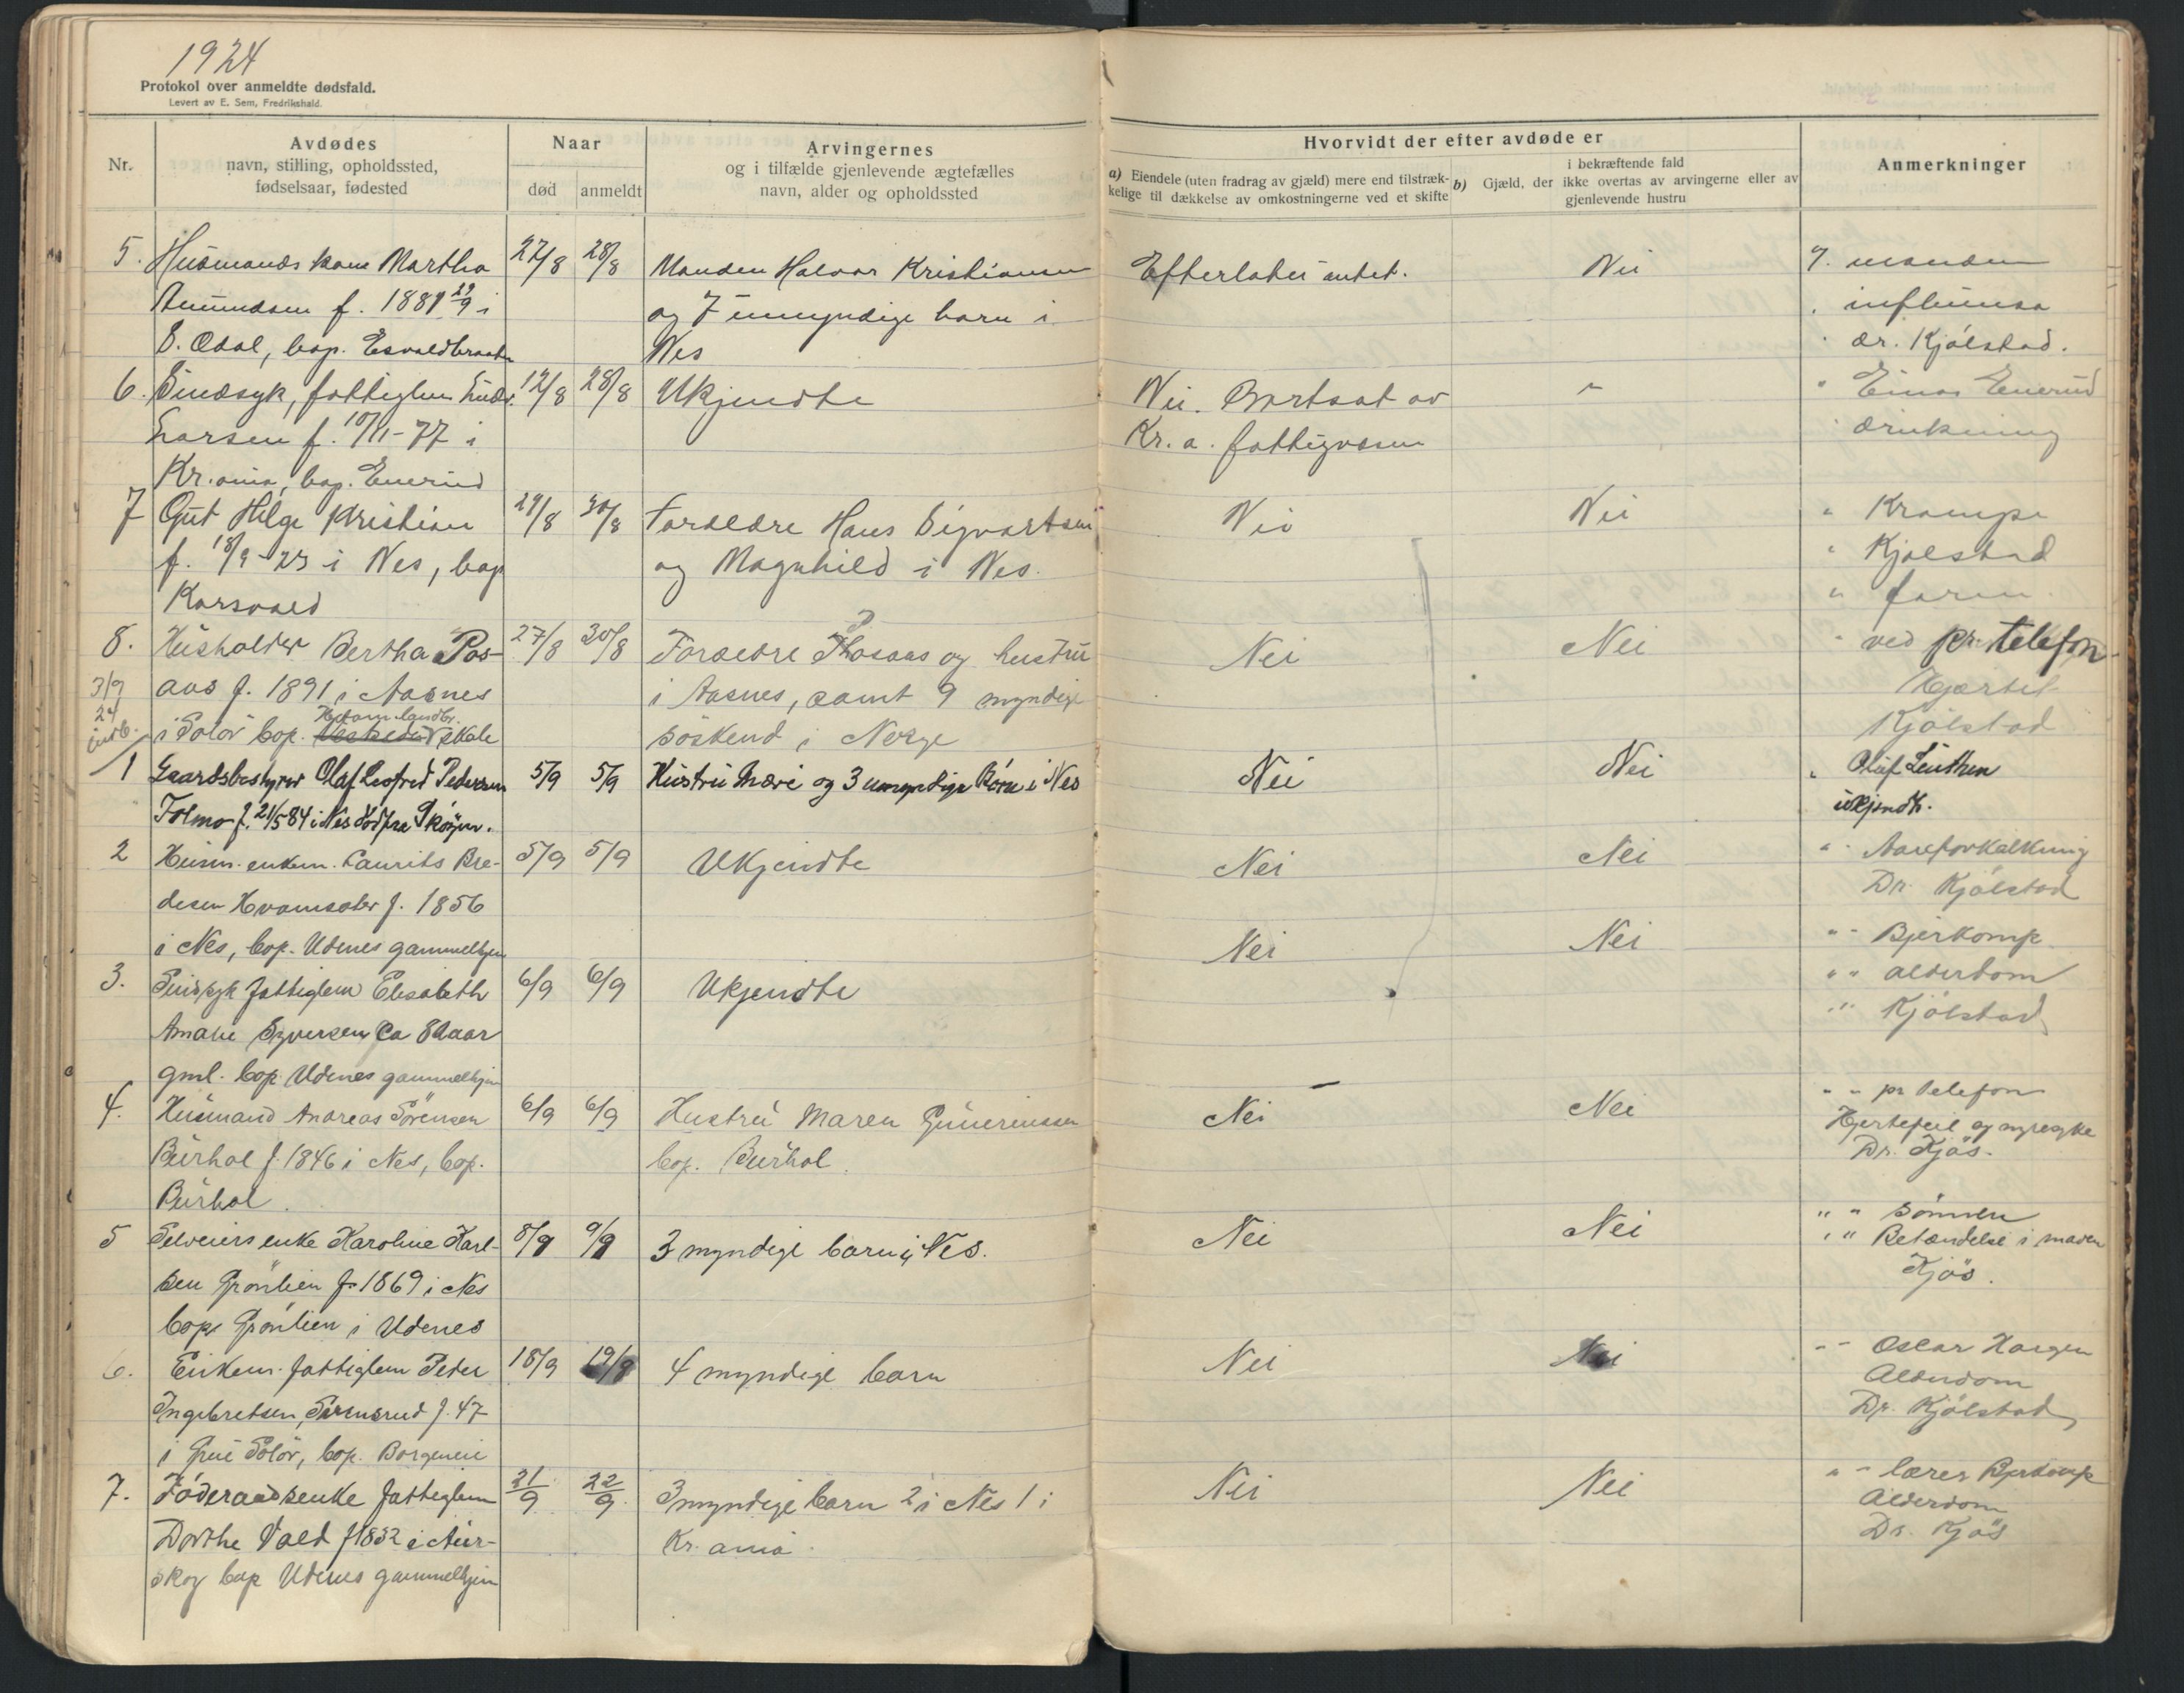 1924
Protokol over anmeldte dødsfald.
Levert av E. Sem, Fredrikshald.
Nr.
Avdødes
navn, stilling, opholdssted,
fødselsaar, fødested
Naar
død
anmeldt
Arvingernes
og i tilfælde gjenlevende ægtefælles
navn, alder og opholdssted
Hvorvidt der efter avdøde er
a) Eiendele (uten fradrag av gjæld) mere end tilstræk-
kelige til dækkelse av omkostningerne ved et skifte
i bekræftende fald
b) Gjæld, der ikke overtas av arvingerne eller av
gjenlevende hustru
Anmerkninger
5. Husmands kone Martha 27/8 28/8 Manden Halvor Kristiansen Efterlater intet. Nei 7. manden
Amundsen f. 1881 29/9 i og 7 umyndige barn i influensa
S. Odal, bop. Esvaldbraaten Nes dr. Kjølstad.
6. Sindsyk, fattiglem Ludv. 12/8 28/8 Ukjendte Nei. Bortsat av " " Einar Enerud
Larsen f. 10/11-77 i Kr.a. fattigvæsen drukning
Kr.ania, bop. Enerud
7 Gut Helge Kristian 29/8 30/8 Forældre Hans Sigvartsen Nei Nei " Krampe
f. 18/9-23 i Nes, bop og Magnhild i Nes. " Kjølstad
Korsvald " faren.
8. Husholder Bertha Pos- 27/8 30/8 Forældre Posaas og hustru Nei Nei " ved pr. telefon
3/9 aas f. 1891 i Aasnes i Aasnes, samt 9 myndige Hjertet
24 indb. i Solør bop. Hvam landbr. skole søskend i Norge Kjølstad
1 Gaardsbestyrer Olaf Leofred Pedersen 5/9 5/9 Hustru Marie og 3 umyndige Børn i Nes Nei Nei " Oluf Leuthen
Folmo f. 21/5 84 i Nes død fra Skøyen. ukjendt.
2 Husm. enkem. Laurits Bre- 5/9 5/9 Ukjendte Nei Nei " Aareforkalkning
desen Hvamsæter f. 1856 Dr. Kjølstad
i Nes, bop. Udenes gammelhjem Nei Nei " Bjerkomp
3. Sindsyk fattiglem Elisabeth 6/9 6/9 Ukjendte " " alderdom
Amalie Syversen Ca 81 aar " Kjølstad
gml. bop. Udenes gammelhjem
4. Husmand Andreas Sørensen 6/9 6/9 Hustru Maren Guneriussen Nei Nei " " pr telefon
Burhol f. 1846 i Nes, bop. bop. Burhol. Hjertefeil og nyresyke
Burhol. Dr. Kjøs.
5 Selveiers enke Karoline Karl- 8/9 9/9 3 myndige barn i Nes. Nei Nei " " sønnen
sen Grønlien f. 1869 i Nes " " Betændelse i maven
bop. Grønlien i Udenes Kjøs.
6. Enkem. fattiglem Peder 18/9 19/9 4 myndige barn Nei Nei " " Oscar Haugen
Ingebretsen, f. 47 Alderdom
i Grue Solør, bop. Borgeneie Dr. Kjølstad
7. Føderaadsenke fattiglem 21/9 22/9 3 myndige barn 2 i Nes 1 i Nei Nei " " lærer Bjerkomp
Dorthe Vald f 1832 i Aur- Kr.ania. Alderdom
skog bop Udenes gammelhjem Dr. Kjøs